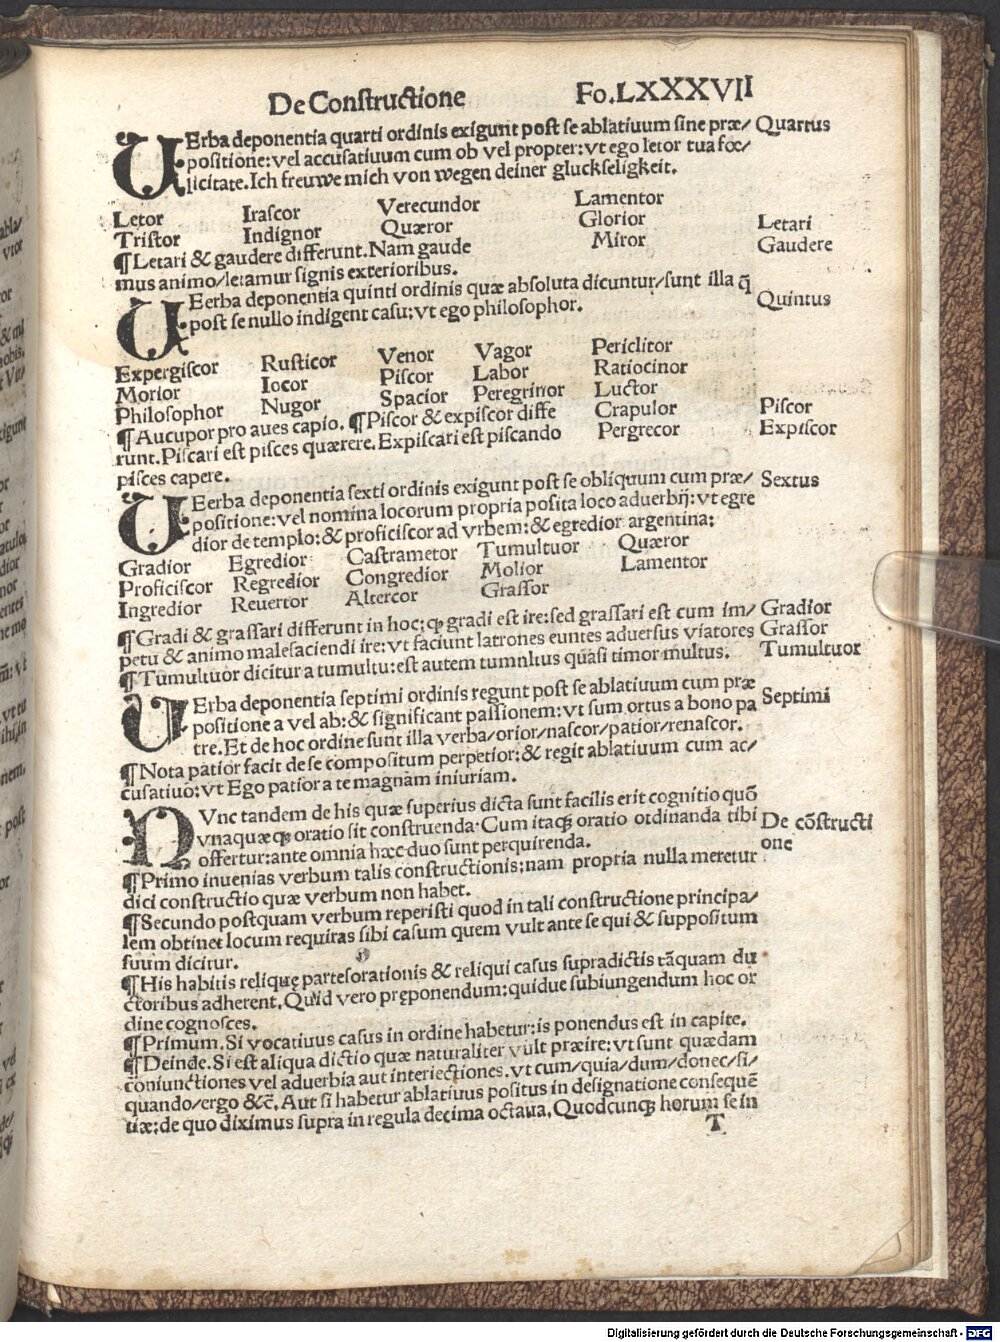 De Constructione Fo.LXXXVII
UErba deponentia quarti ordinis exigunt post se ablatiuum sine præ/ Quartus
positione: vel accusatiuum cum ob vel propter: vt ego letor tua fœ/
licitate. Ich freuwe mich von wegen deiner gluckseligkeit.
Letor Irascor Verecundor Lamentor
Tristor Indignor Quæror Glorior Letari
¶Letari & gaudere differunt. Nam gaude Miror Gaudere
mus animo/letamur signis exterioribus.
UEerba deponentia quinti ordinis quæ absoluta dicuntur/sunt illa q̄ Quintus
post se nullo indigent casu: vt ego philosophor.
Expergiscor Rusticor Venor Vagor Periclitor
Morior Iocor Piscor Labor Ratiocinor
Philosophor Nugor Spacior Peregrinor Luctor
¶Aucupor pro aues capio. ¶Piscor & expiscor diffe Crapulor Piscor
runt. Piscari est pisces quærere. Expiscari est piscando Pergrecor Expiscor
pisces capere.
UEerba deponentia sexti ordinis exigunt post se obliquum cum præ/ Sextus
positione: vel nomina locorum propria posita loco aduerbij: vt egre
dior de templo: & proficiscor ad vrbem: & egredior argentina:
Gradior Egredior Castrametor Tumultuor Quæror
Proficiscor Regredior Congredior Molior Lamentor
Ingredior Reuertor Altercor Grassor
¶Gradi & grassari differunt in hoc; ꝙ gradi est ire: sed grassari est cum im/ Gradior
petu & animo malefaciendi ire: vt faciunt latrones euntes aduersus viatores Grassor
¶Tumultuor dicitur a tumultu: est autem tumnltus quasi timor multus. Tumultuor
UErba deponentia septimi ordinis regunt post se ablatiuum cum præ Septimi
positione a vel ab: & significant passionem: vt sum ortus a bono pa
tre. Et de hoc ordine sunt illa verba/orior/nascor/patior/renascor.
¶Nota patior facit de se compositum perpetior: & regit ablatiuum cum ac/
cusatiuo: vt Ego patior a te magnam iniuriam.
NVnc tandem de his quæ superius dicta sunt facilis erit cognitio quō
vnaquæq; oratio sit construenda. Cum itaq; oratio otdinanda tibi De cōstructi
offertur: ante omnia hæc duo sunt perquirenda. one
¶Primo inuenias verbum talis constructionis: nam propria nulla meretur
dici constructio quæ verbum non habet.
¶Secundo postquam verbum reperisti quod in tali constructione principa/
lem obtinet locum requiras sibi casum quem vult ante se qui & suppositum
suum dicitur.
¶His habitis reliquę partesorationis & reliqui casus supradictis tāquam du
ctoribus adherent. Quid vero pręponendum: quidue subiungendum hoc or
dine cognosces.
¶Primum. Si vocatiuus casus in ordine habetur: is ponendus est in capite.
¶Deinde. Si est aliqua dictio quæ naturaliter vult præire: vt sunt quædam
coniunctiones vel aduerbia aut interiectiones. vt cum/quia/dum/donec/si/
quando/ergo &c̄. Aut si habetur ablatiuus positus in designatione consequē
tiæ: de quo diximus supra in regula decima octaua. Quodcunq; horum se in
T
Digitalisierung gefördert durch die Deutsche Forschungsgemeinschaft - DFG